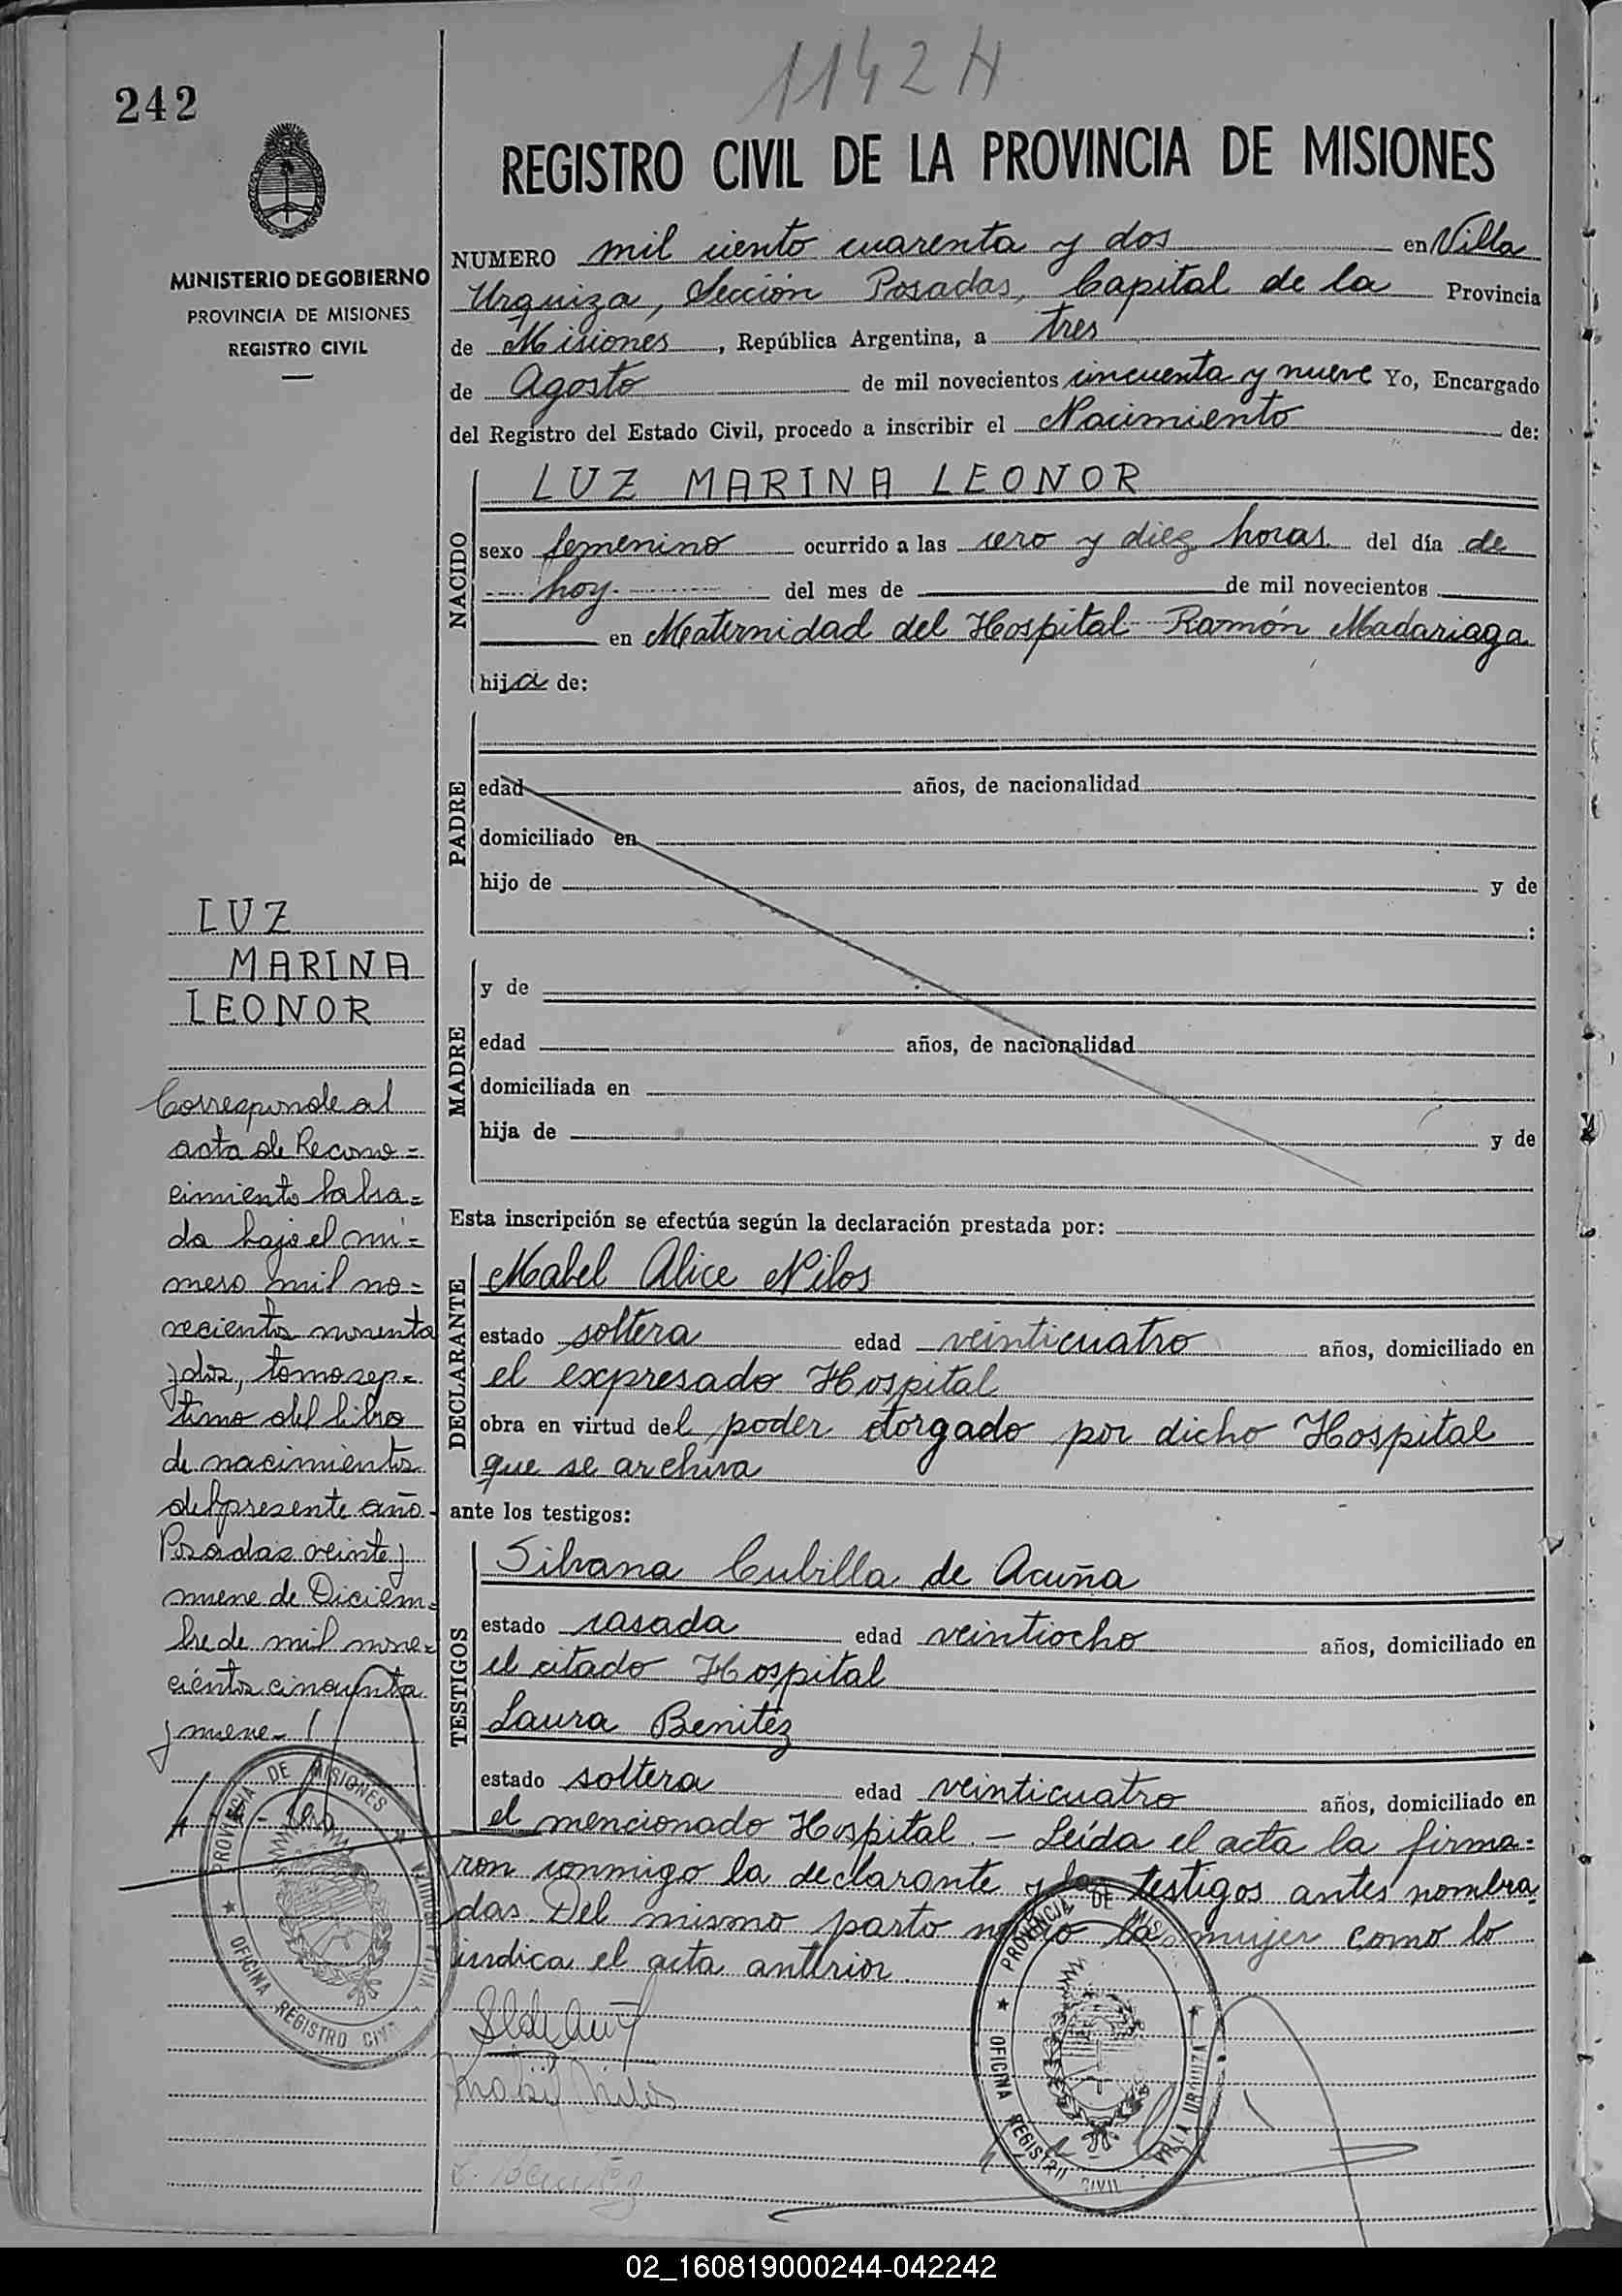 242
1142 H
MINISTERIO DE GOBIERNO
PROVINCIA DE MISIONES
REGISTRO CIVIL
REGISTRO CIVIL DE LA PROVINCIA DE MISIONES
NUMERO mil ciento cuarenta y dos en Villa
Urquiza, Sección Posadas, Capital de la Provincia
de Misiones, República Argentina, a tres
de Agosto de mil novecientos cincuenta y nueve Yo, Encargado
del Registro del Estado Civil, procedo a inscribir el Nacimiento de:
NACIDO
LUZ MARINA LEONOR
sexo femenino ocurrido a las cero y diez horas del día de
hoy. del mes de de mil novecientos
en Maternidad del Hospital Ramón Madariaga
hija de:
PADRE
edad años, de nacionalidad
domiciliado en
hijo de y de
:
MADRE
y de
edad años, de nacionalidad
domiciliada en
hija de y de
Esta inscripción se efectúa según la declaración prestada por:
DECLARANTE
Mabel Alice Nilos
estado soltera edad veinticuatro años, domiciliado en
el expresado Hospital
obra en virtud del poder otorgado por dicho Hospital
que se archiva
ante los testigos:
TESTIGOS
Silvana Cubilla de Acuña
estado casada edad veintiocho años, domiciliado en
el citado Hospital
Laura Benitez
estado soltera edad veinticuatro años, domiciliado en
el mencionado Hospital. - Leída el acta la firma=
ron conmigo la declarante y las testigos antes nombra=
das. Del mismo parto nació la mujer como lo
indica el acta anterior.
Mabel Nilos
L. Benitez
LUZ
MARINA
LEONOR
Corresponde al
acta de Recono=
cimiento labra=
da bajo el nú=
mero mil no=
vecientos noventa
y dos, tomo sep=
timo del libro
de nacimientos
del presente año.
Posadas veinte y
nueve de Diciem=
bre de mil nove=
cientos cincuenta
y nueve-
PROVINCIA DE MISIONES
OFICINA REGISTRO CIVIL
VILLA URQUIZA
PROVINCIA DE MISI
OFICINA REGISTRO CIVIL
VILLA URQUIZA
02_160819000244-042242